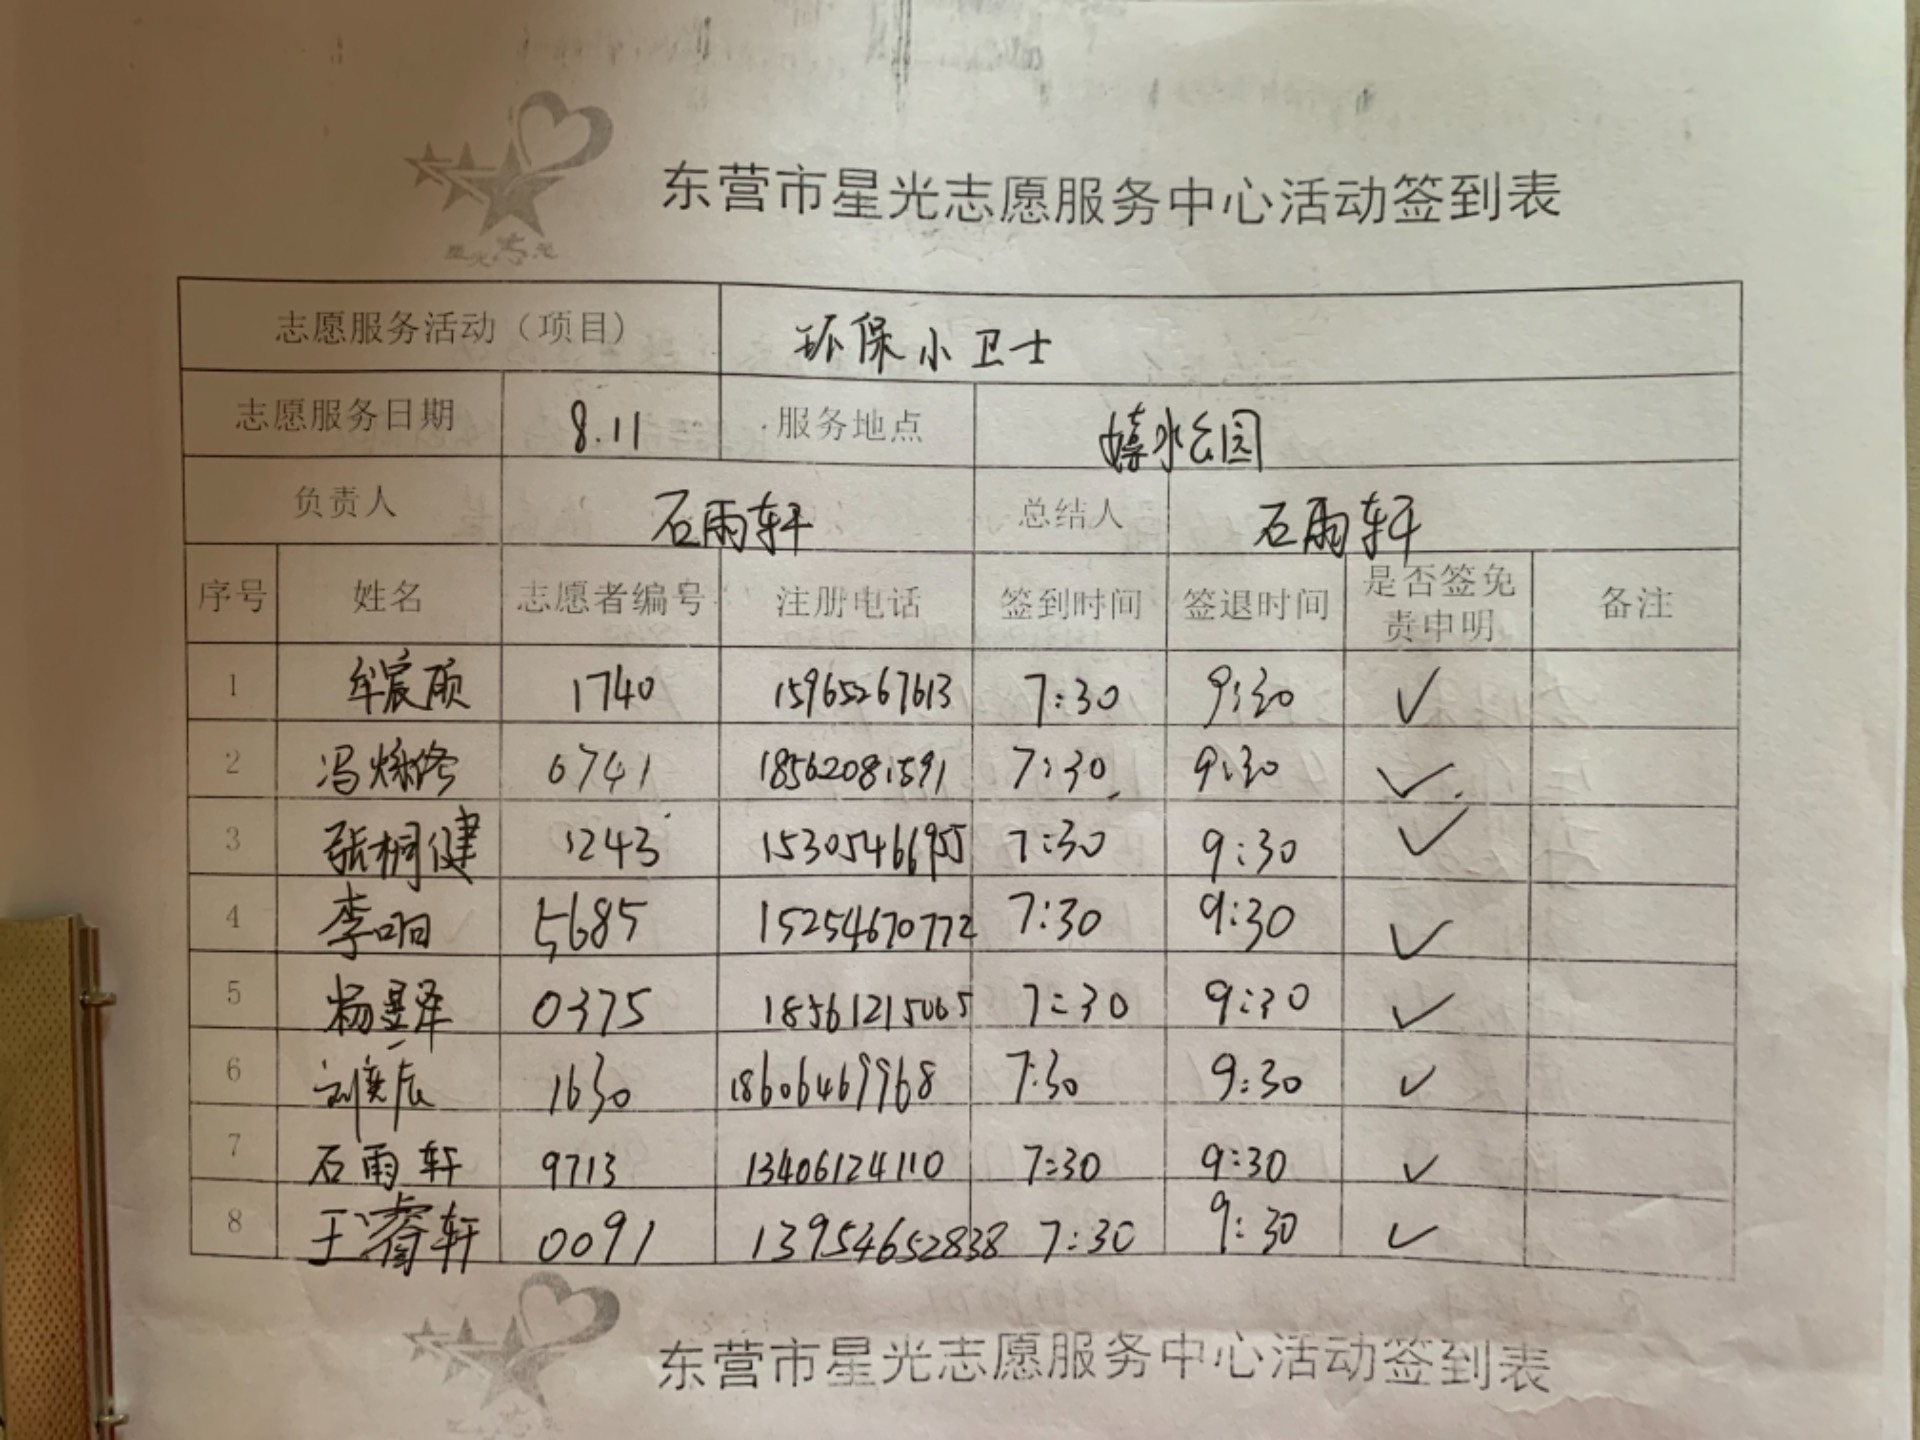 东营市星光志愿服务中心活动签到表
志愿服务活动（项目） 环保小卫士
志愿服务日期 8.11 服务地点 嬉水公园
负责人 石雨轩 总结人 石雨轩
序号 姓名 志愿者编号 注册电话 签到时间 签退时间 是否签免责申明 备注
1 牟宸硕 1740 15965267613 7:30 9:30 ✓
2 冯 0741 18562081591 7:30 9:30 ✓
3 张桐健 1243 15305466955 7:30 9:30 ✓
4 李响 5685 15254670772 7:30 9:30 ✓
5 杨昱泽 0375 18561215065 7:30 9:30 ✓
6 刘奕辰 1630 18606469968 7:30 9:30 ✓
7 石雨轩 9713 13406124110 7:30 9:30 ✓
8 于睿轩 0091 13954652838 7:30 9:30 ✓
东营市星光志愿服务中心活动签到表